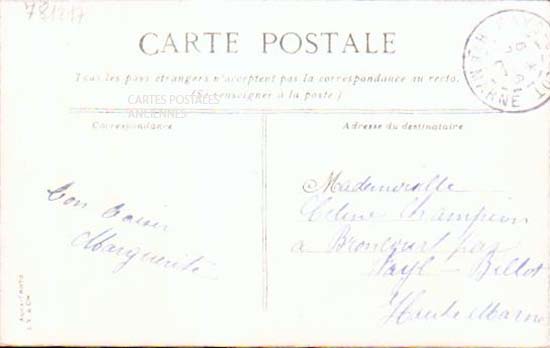 781217
CARTE POSTALE
Tous les pays étrangers n'acceptent pas la correspondance au recto.
(Se renseigner à la poste)
CARTES POSTALES
ANCIENNES
Correspondance
Adresse du destinataire
Bon baiser
Marguerite
Mademoiselle
Céline Champion
à Broncourt par
Fayl-Billot
Haute Marne
MARNE